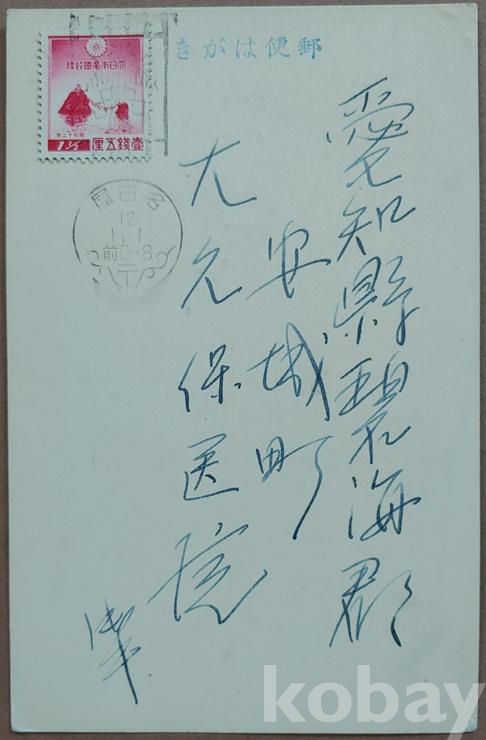 郵便はがき
大日本帝國郵便
昭和十二年
壹錢五厘
1½
名古屋
12
1.1
前0-8
愛知縣碧海郡
安城町
大久保医院
kobay